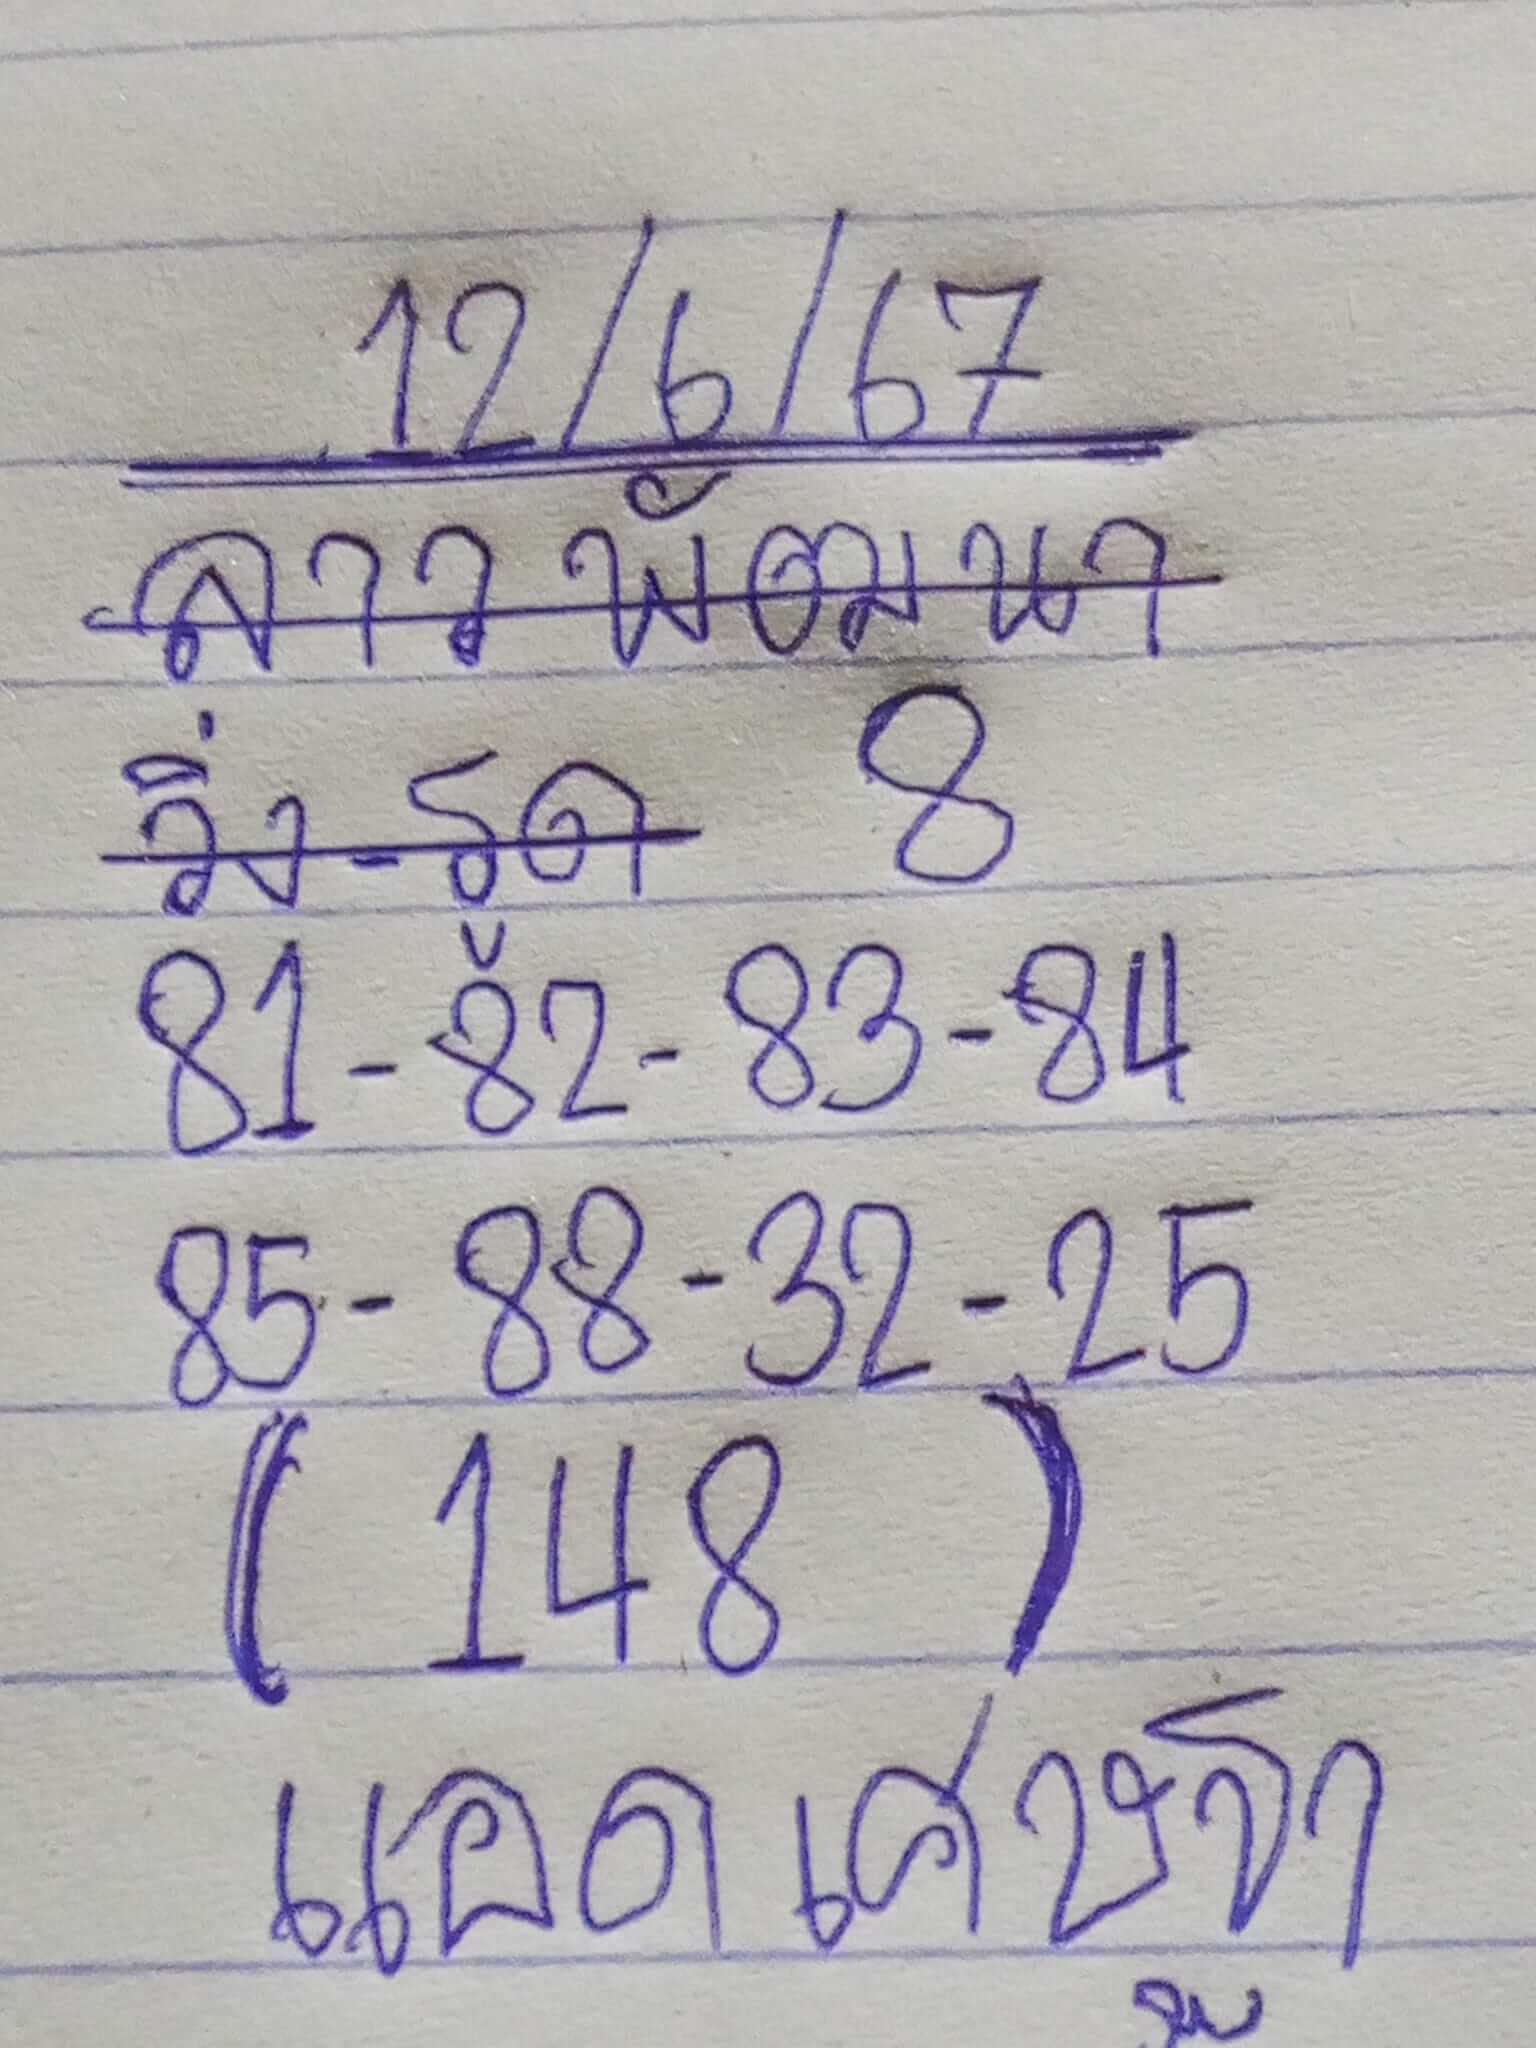 12/6/67
ลาวพัฒนา
วิ่ง-รูด 8
81-82-83-84
85-88-32-25
(148)